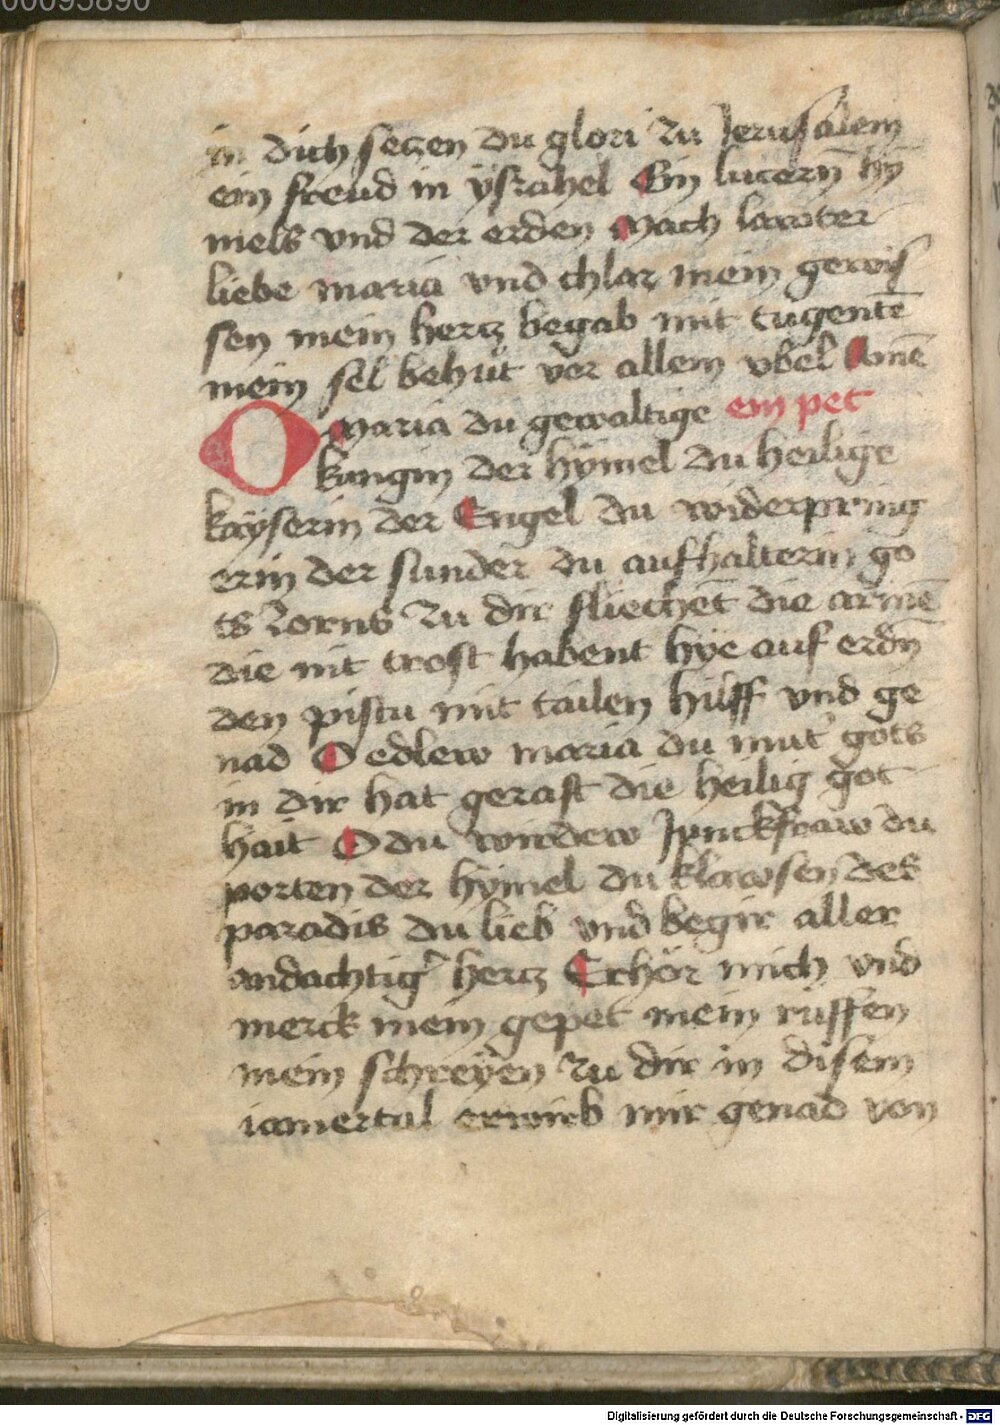 00095890
in dich seczen du glori zu Jerusalem
ein freud in ysrahel Ein lucern hÿ
mels vnd der erden Mach lawter
liebe maria vnd chlar mein gewis
sen mein hercz begab mit tugentē
mein sel behüt vor allem vbel Amē
O Maria du gewaltige ein pet
kungin der hymel du heilige
kayserin der Engel du widerpring
erin der sunder du aufhalterin go
ts zorns zu dir fliechēt die armē
die nit trost habent hye auf erdn̄
den pistu mit tailen hilff vnd ge
nad O edlew maria du mut' gots
in dir hat gerast die heilig got
hait O du wirdew Junckfraw du
porten der hymel du klawsen des
paradis du lieb vnd begir aller
andachtig' hercz Erhör mich vnd
merck mein gepet mein rüffen
mein schreyen zu dir in disem
iamertal erwirb mir genad von
Digitalisierung gefördert durch die Deutsche Forschungsgemeinschaft - DFG